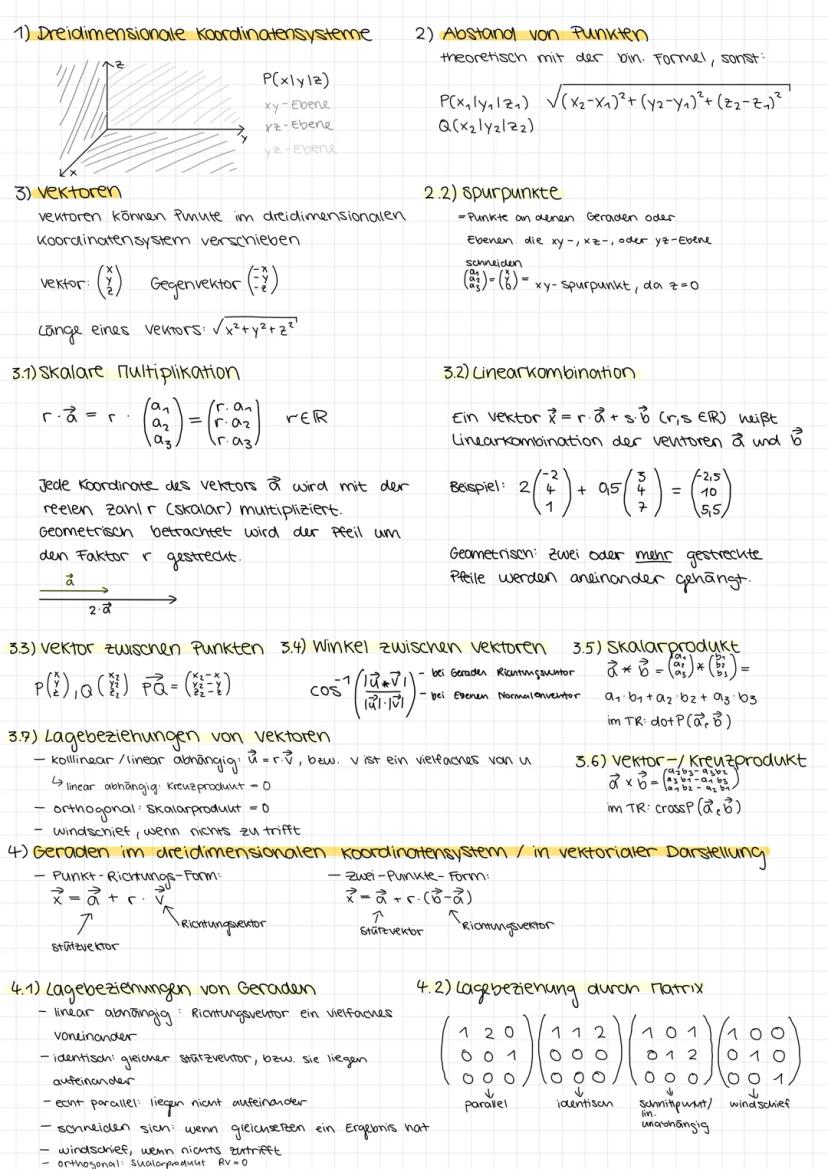 1) Dreidimensionale Koordinatensysteme
z
y
x
P(x|y|z)
xy-Ebene
xz-Ebene
yz-Ebene
2) Abstand von Punkten
theoretisch mit der bin. Formel, sonst:
P(x₁|y₁|z₁) √(x₂-x₁)²+(y₂-y₁)²+(z₂-z₁)²
Q(x₂|y₂|z₂)
3) Vektoren
Vektoren können Punkte im dreidimensionalen
Koordinatensystem verschieben
Vektor: (x y z) Gegenvektor (-x -y -z)
Länge eines Vektors: √x²+y²+z²
2.2) Spurpunkte
-Punkte an denen Geraden oder
Ebenen die xy-, xz-, oder yz-Ebene
schneiden
(a₁ a₂ a₃) = (x y 0) = xy-Spurpunkt, da z=0
3.1) Skalare Multiplikation
r · a⃗ = r · (a₁ a₂ a₃) = (r·a₁ r·a₂ r·a₃) r∈ℝ
Jede Koordinate des Vektors a⃗ wird mit der
reelen Zahl r (Skalar) multipliziert.
Geometrisch betrachtet wird der Pfeil um
den Faktor r gestreckt.
a⃗
2·a⃗
3.2) Linearkombination
Ein Vektor x⃗ = r·a⃗ + s·b⃗ (r,s ∈ℝ) heißt
Linearkombination der Vektoren a⃗ und b⃗
Beispiel: 2(-2 4 1) + 0,5(3 4 7) = (-2,5 10 5,5)
Geometrisch: Zwei oder mehr gestreckte
Pfeile werden aneinander gehängt.
3.3) Vektor zwischen Punkten
P(x y z), Q(x₂ y₂ z₂) PQ⃗ = (x₂-x y₂-y z₂-z)
3.4) Winkel zwischen Vektoren
cos⁻¹(|u⃗*v⃗| / |u⃗|·|v⃗|)
- bei Geraden Richtungsvektor
- bei Ebenen Normalenvektor
3.5) Skalarprodukt
a⃗ * b⃗ = (a₁ a₂ a₃) * (b₁ b₂ b₃) =
a₁·b₁+a₂·b₂+a₃·b₃
im TR: dotP(a⃗, b⃗)
3.7) Lagebeziehungen von Vektoren
- kollinear/linear abhängig: u⃗ = r·v⃗, bzw. v ist ein vielfaches von u
↳ linear abhängig: Kreuzprodukt = 0
- orthogonal: Skalarprodukt = 0
- windschief, wenn nichts zutrifft
3.6) Vektor-/Kreuzprodukt
a⃗ × b⃗ = (a₂b₃-a₃b₂ a₃b₁-a₁b₃ a₁b₂-a₂b₁)
im TR: crossP(a⃗, b⃗)
4) Geraden im dreidimensionalen Koordinatensystem / in vektorieller Darstellung
- Punkt-Richtungs-Form:
x⃗ = a⃗ + r · v⃗
Richtungsvektor
Stützvektor
- Zwei-Punkte-Form:
x⃗ = a⃗ + r·(b⃗-a⃗)
Stützvektor
Richtungsvektor
4.1) Lagebeziehungen von Geraden
- linear abhängig: Richtungsvektor ein vielfaches
voneinander
- identisch: gleicher Stützvektor, bzw. sie liegen
aufeinander
- echt parallel: liegen nicht aufeinander
- schneiden sich: wenn gleichsetzen ein Ergebnis hat
- windschief, wenn nichts zutrifft
- orthogonal: Skalarprodukt RV=0
4.2) Lagebeziehung durch Matrix
1 2 0 1 1 2 1 0 1 1 0 0
0 0 1 0 0 0 0 1 2 0 1 0
0 0 0 0 0 0 0 0 0 0 0 1
parallel identisch Schnittpunkt/ windschief
lin.
unabhängig